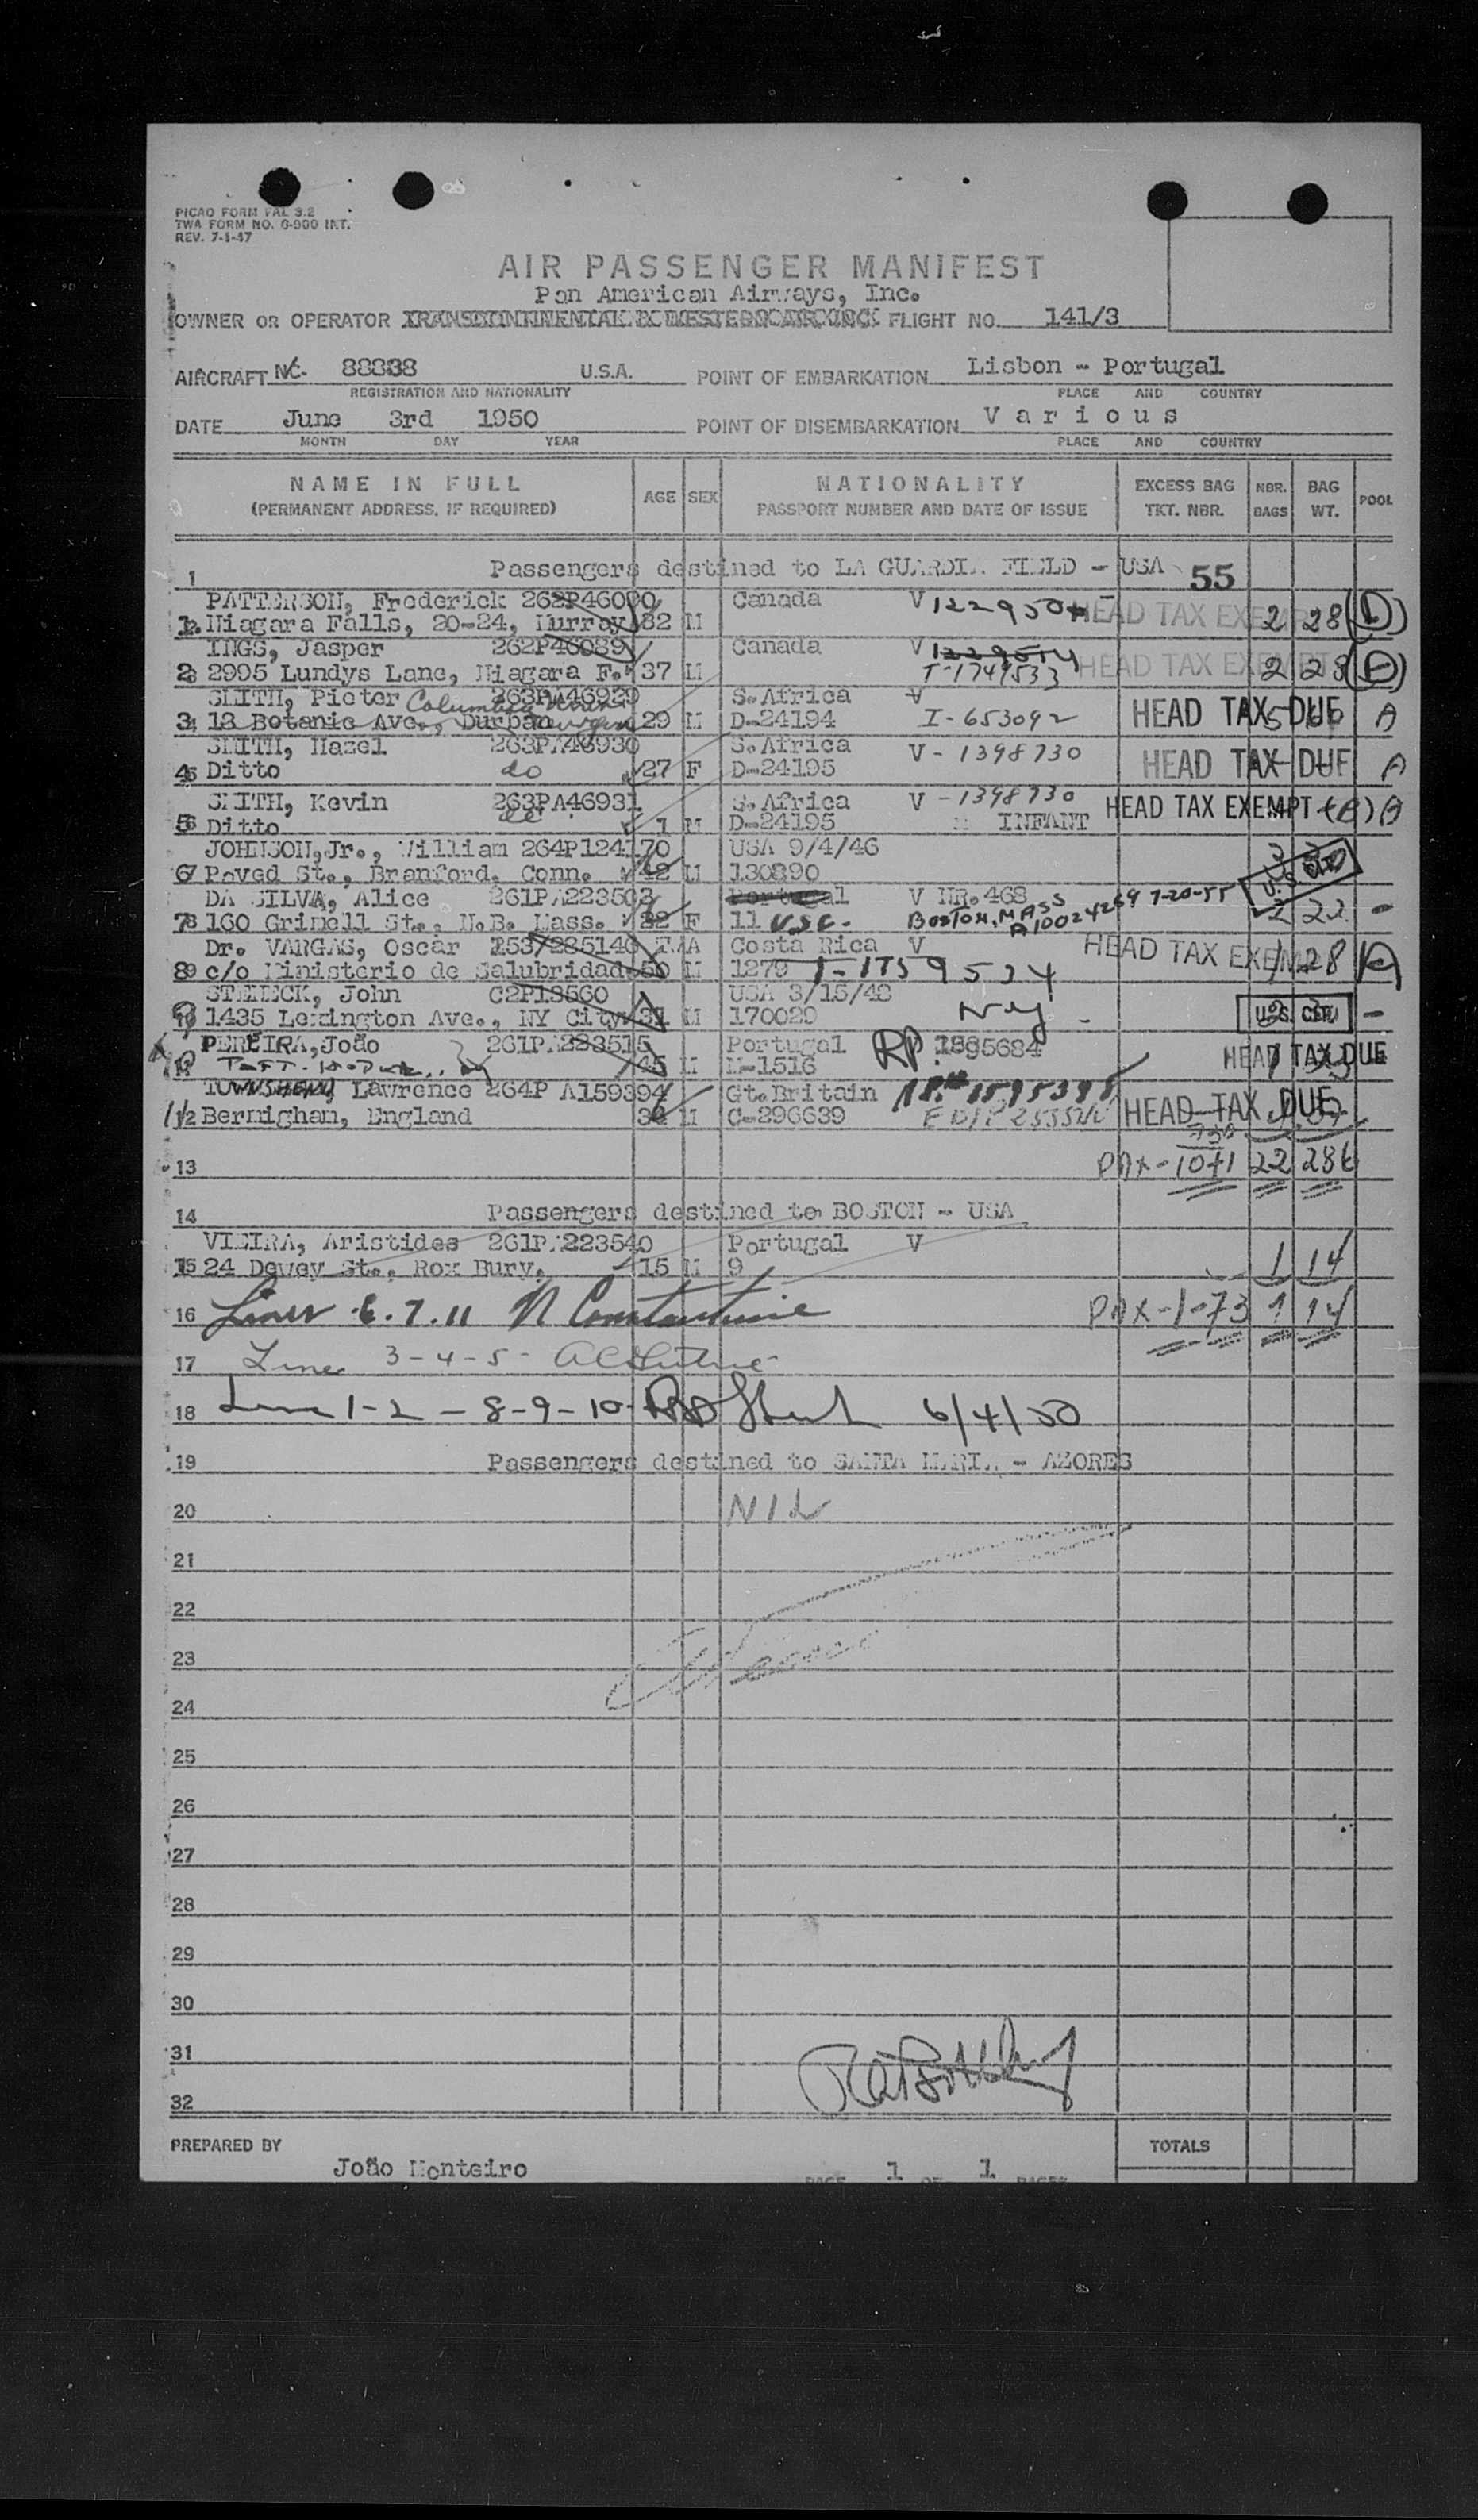 PICAO FORM FAL 3.2
TWA FORM NO. G-900 INT.
REV. 7-1-47
AIR PASSENGER MANIFEST
Pan American Airways, Inc.
OWNER OR OPERATOR FLIGHT NO. 141/3
AIRCRAFT NC- 88838 U.S.A. POINT OF EMBARKATION Lisbon - Portugal
REGISTRATION AND NATIONALITY PLACE AND COUNTRY
DATE June 3rd 1950 POINT OF DISEMBARKATION Various
MONTH DAY YEAR PLACE AND COUNTRY
NAME IN FULL AGE SEX NATIONALITY EXCESS BAG NBR. BAG POOL
(PERMANENT ADDRESS, IF REQUIRED) PASSPORT NUMBER AND DATE OF ISSUE TKT. NBR. BAGS WT.
1 Passengers destined to LA GUARDIA FIELD - USA 55
PATTERSON, Frederick 262P46090 Canada V HEAD TAX EXEMPT 2 28
Niagara Falls, 20-24, Murray 82 M
INGS, Jasper 262P46089 Canada V 1229514 HEAD TAX EXEMPT 2 28
2 2995 Lundys Lane, Niagara F. 37 M T-1749533
SMITH, Pieter 263PA46929 S.Africa V
3 18 Botanic Ave., Durban 29 M D-24194 I-653092 HEAD TAX DUE A
SMITH, Hazel 263PA46930 S.Africa V-1398730
4 Ditto do 27 F D-24195 HEAD TAX DUE A
SMITH, Kevin 263PA46931 S.Africa V-1398730 HEAD TAX EXEMPT
5 Ditto do 1 M D-24195 INFANT
JOHNSON, Jr., William 264P124170 USA 9/4/46
6 Paved St., Branford, Conn. 42 M 130890
DA SILVA, Alice 261PA223503 Portugal V NR.468
7 160 Grinell St., N.B. Mass. 32 F 11 USC. BOSTON, MASS 7-20-55 2 22 -
Dr. VARGAS, Oscar Costa Rica V HEAD TAX EXEMPT 28
8 c/o Ministerio de Salubridad 50 M 1279
John C2P18560 USA 3/15/48
1435 Lexington Ave., NY City 31 M 170029 NY - U.S. CIT. -
PEREIRA, João 261PA223515 Portugal RP. 1395684
45 M M-1516 HEAD TAX DUE
TOWNSHEND, Lawrence 264P A159394 Gt.Britain
12 Bermigham, England M C-296639 HEAD TAX DUE
13 PAX-10+1 22 286
14 Passengers destined to BOSTON - USA
VIEIRA, Aristides 261PA223540 Portugal V
15 24 Dewey St., Rox Bury. 15 M 9 1 14
16 Lines 6.7.11 N Constantine PAX-1-73 1 14
17 Line 3-4-5-
18 Line 1-2-8-9-10- 6/4/50
19 Passengers destined to SANTA MARIA - AZORES
20 NIL
21
22
23
24
25
26
27
28
29
30
31
32
PREPARED BY TOTALS
João Monteiro PAGE 1 OF 1 PAGES